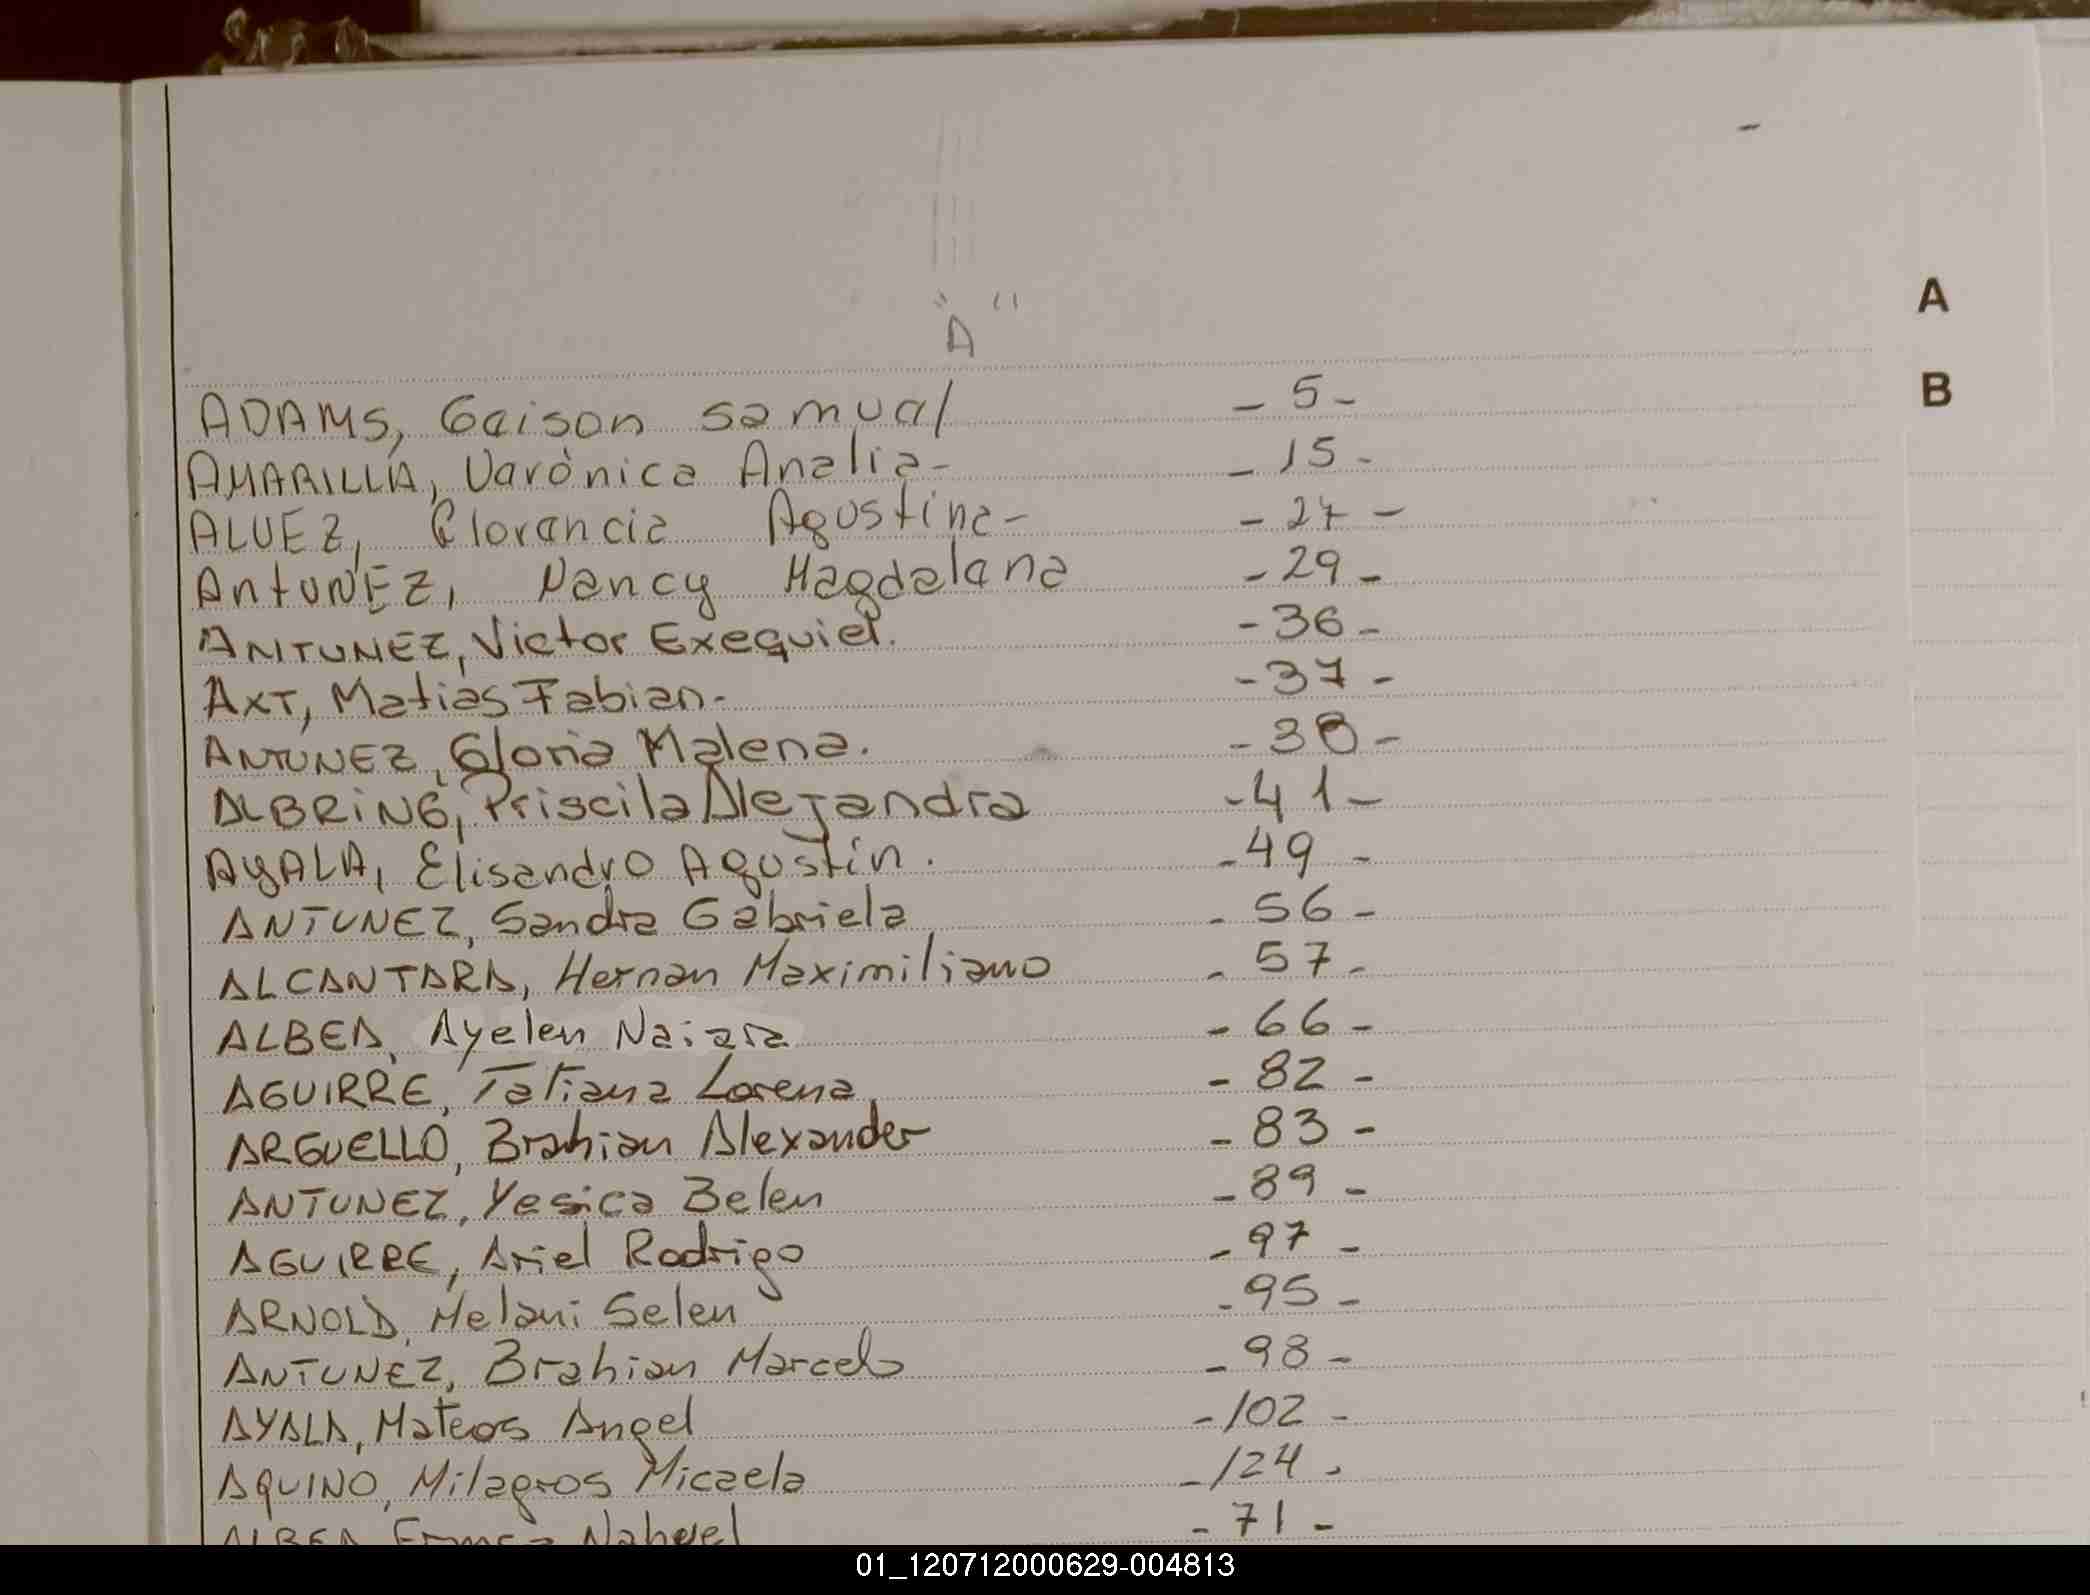 "A"
A
B
ADAMS, Geison Samuel - 5 -
AMARILLA, Verónica Analia - - 15 -
ALVEZ, Florencia Agustina - - 24 -
ANTUNEZ, Nancy Magdalena - 29 -
ANTUNEZ, Victor Exequiel. - 36 -
AXT, Matias Fabian. - 37 -
ANTUNEZ, Gloria Malena. - 38 -
ALBRING, Priscila Alejandra - 41 -
AYALA, Elisandro Agustin. - 49 -
ANTUNEZ, Sandra Gabriela - 56 -
ALCANTARA, Hernan Maximiliano - 57 -
ALBEA, Ayelen Naiara - 66 -
AGUIRRE, Tatiana Lorena - 82 -
ARGUELLO, Brahian Alexander - 83 -
ANTUNEZ, Yesica Belen - 89 -
AGUIRRE, Ariel Rodrigo - 97 -
ARNOLD, Melani Selen - 95 -
ANTUNEZ, Brahian Marcelo - 98 -
AYALA, Mateos Angel - 102 -
AQUINO, Milagros Micaela - 124 -
ALBEA Nahuel - 71 -
01_120712000629-004813